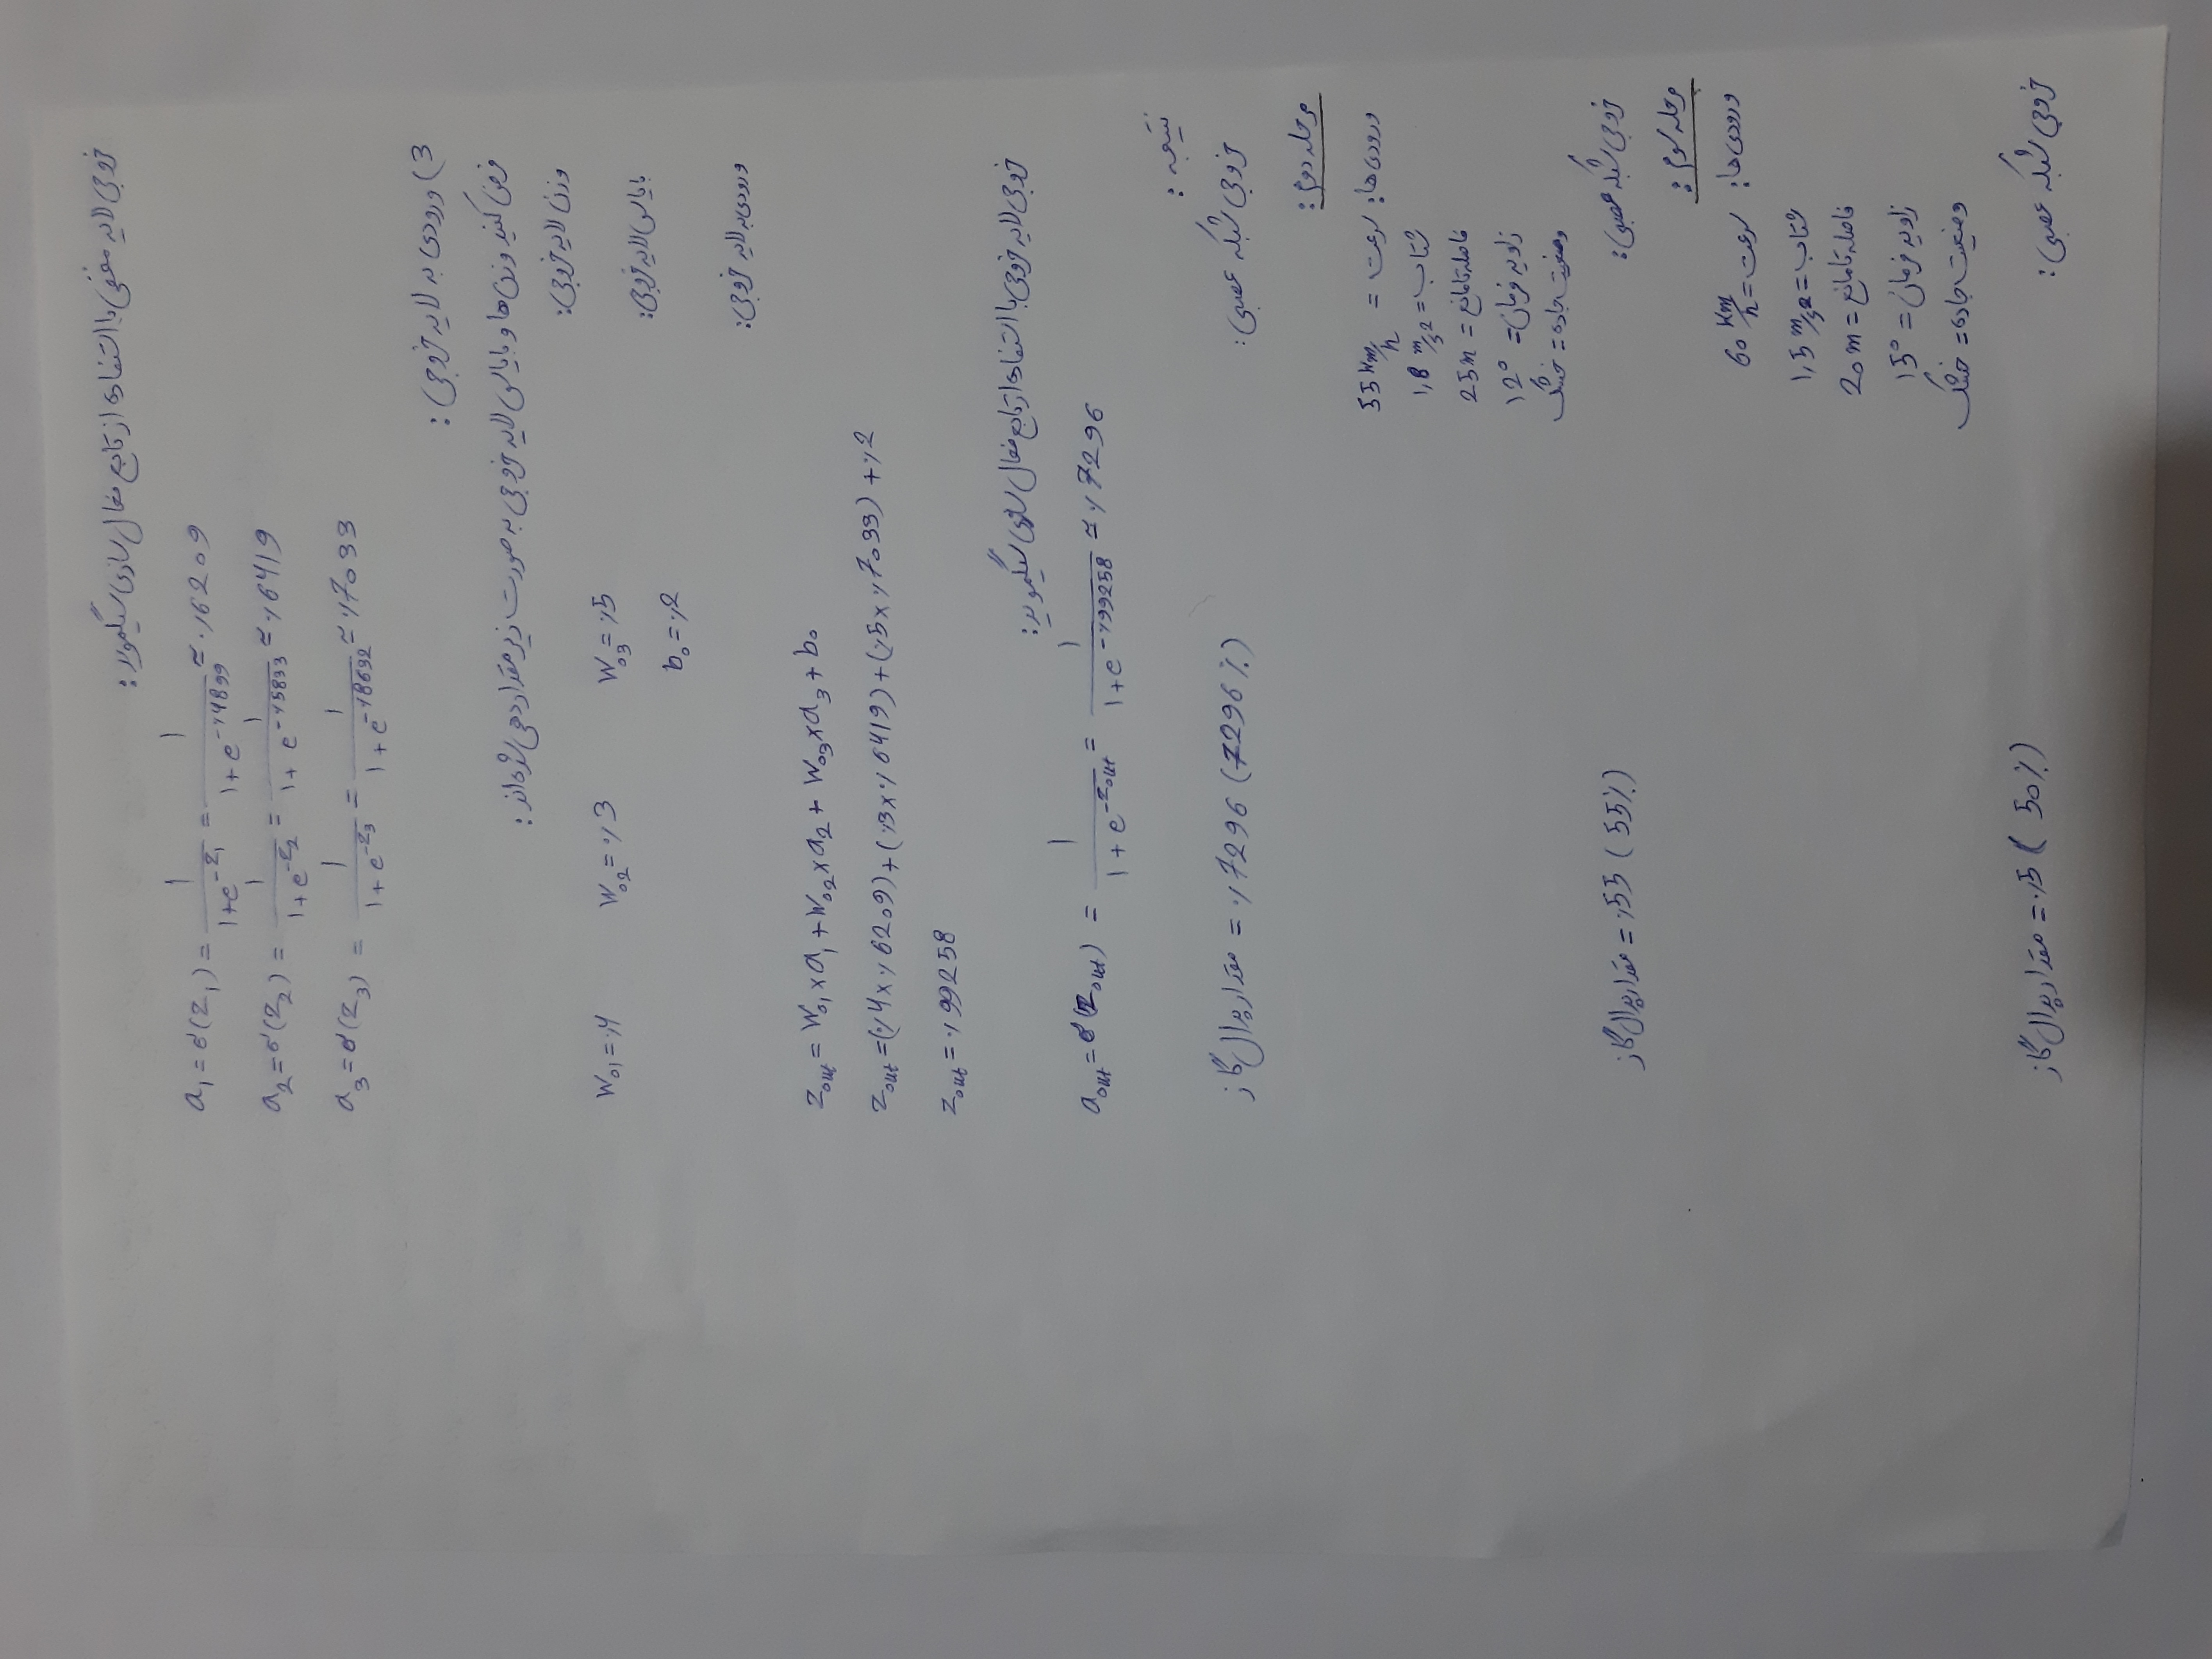 خروجی لایه مخفی با استفاده از تابع فعال سازی سیگموید :
a₁ = σ(z₁) = 1/(1+e^-z₁) = 1/(1+e^-٫4899) ≈ ۰٫6209
a₂ = σ(z₂) = 1/(1+e^-z₂) = 1/(1+e^-٫5833) ≈ ٫6419
a₃ = σ(z₃) = 1/(1+e^-z₃) = 1/(1+e^-٫8632) ≈ ٫7033
3) ورودی به لایه خروجی :
فرض کنید وزن ها و بایاس لایه خروجی به صورت زیر مقداردهی شده اند :
وزن لایه خروجی:
W₀₁ = ۰٫4 W₀₂ = ۰٫3 W₀₃ = ٫5
بایاس لایه خروجی:
b₀ = ۰٫2
ورودی به لایه خروجی:
z_out = W₀₁×a₁ + W₀₂×a₂ + W₀₃×a₃ + b₀
z_out = (۰٫4×۰٫6209) + (۰٫3×۰٫6419) + (٫5×٫7033) + ۰٫2
z_out = ۰٫99258
خروجی لایه خروجی با استفاده از تابع فعال سازی سیگموید :
a_out = σ(z_out) = 1/(1+e^-z_out) = 1/(1+e^-٫99258) ≈ ۰٫7296
نتیجه :
خروجی شبکه عصبی : مقدار پدال گاز = ۰٫7296 (7296٪)
مرحله دوم :
ورودی ها: سرعت = 55 km/h
شتاب = 1,8 m/s2
فاصله تا مانع = 25m
زاویه فرمان = 12°
وضعیت جاده = خشک
خروجی شبکه عصبی : مقدار پدال گاز = ۰٫55 (55٪)
مرحله سوم :
ورودی ها: سرعت = 60 km/h
شتاب = 1,5 m/s2
فاصله تا مانع = 20m
زاویه فرمان = 15°
وضعیت جاده = خشک
خروجی شبکه عصبی : مقدار پدال گاز = ۰٫5 (50٪)